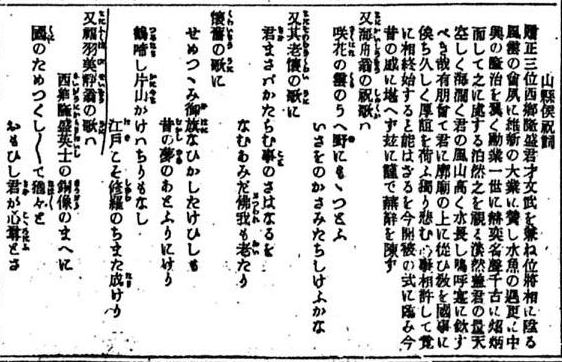 山縣侯祝詞
贈正三位西郷隆盛君才文武を兼ね位將相に陞る
風雲の會夙に維新の大業に賛し水魚の遇更に中
興の隆治を翼く勳業一世に赫奕名聲千古に炤炳
而して之に處する泊然之を視る漠然蓋君の量天
空しく海濶く君の風山高く水長し嗚呼
有朋
君に
に從ひ敎を國事に
久しく厚誼を荷ふ獨り悲む心事相許して
に相終始すると能はざるを今開被の式に臨み今
昔の感に堪へず玆に謹で蕪辭を陳す
又海舟翁の祝歌ハ
咲花の雲のうへ野にもゝつとふ
いさをのかさみたちしけふかな
又其老懷の歌に
君まさばかたらむ事のさはなるを
なむあみだ佛我も老たり
懷舊の歌に
せめつゝみ御旗なひかしたけひしも
昔の夢のあとふりにけり
鶴啼し片山かけハちりもなし
江戸こそ修羅のちまた成けり
又福羽英靜翁の歌ハ
西郷隆盛英士の銅像のまへに
國のためつくし〱て
おもひし君が心尊とさ